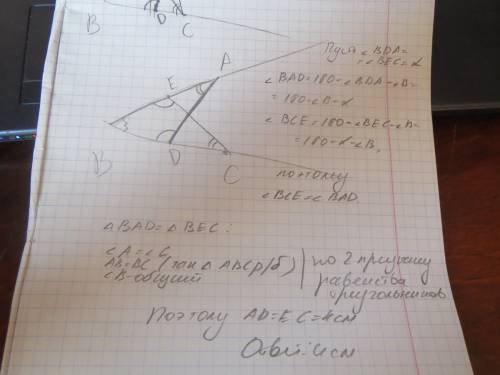 B D C
Пусть ∠BDA=
=∠BEC=α
A
E
∠BAD=180-∠BDA-∠B=
=180-∠B-α
∠BCE=180-∠BEC-∠B=
=180-α-∠B,
B
D
C
поэтому
∠BCE=∠BAD.
△BAD=△BEC:
∠A=∠C
AB=BC (так △ABC р/б)
∠B-общий
по 2 признаку
равенства
треугольников
Поэтому AD=EC=4см
Ответ: 4см